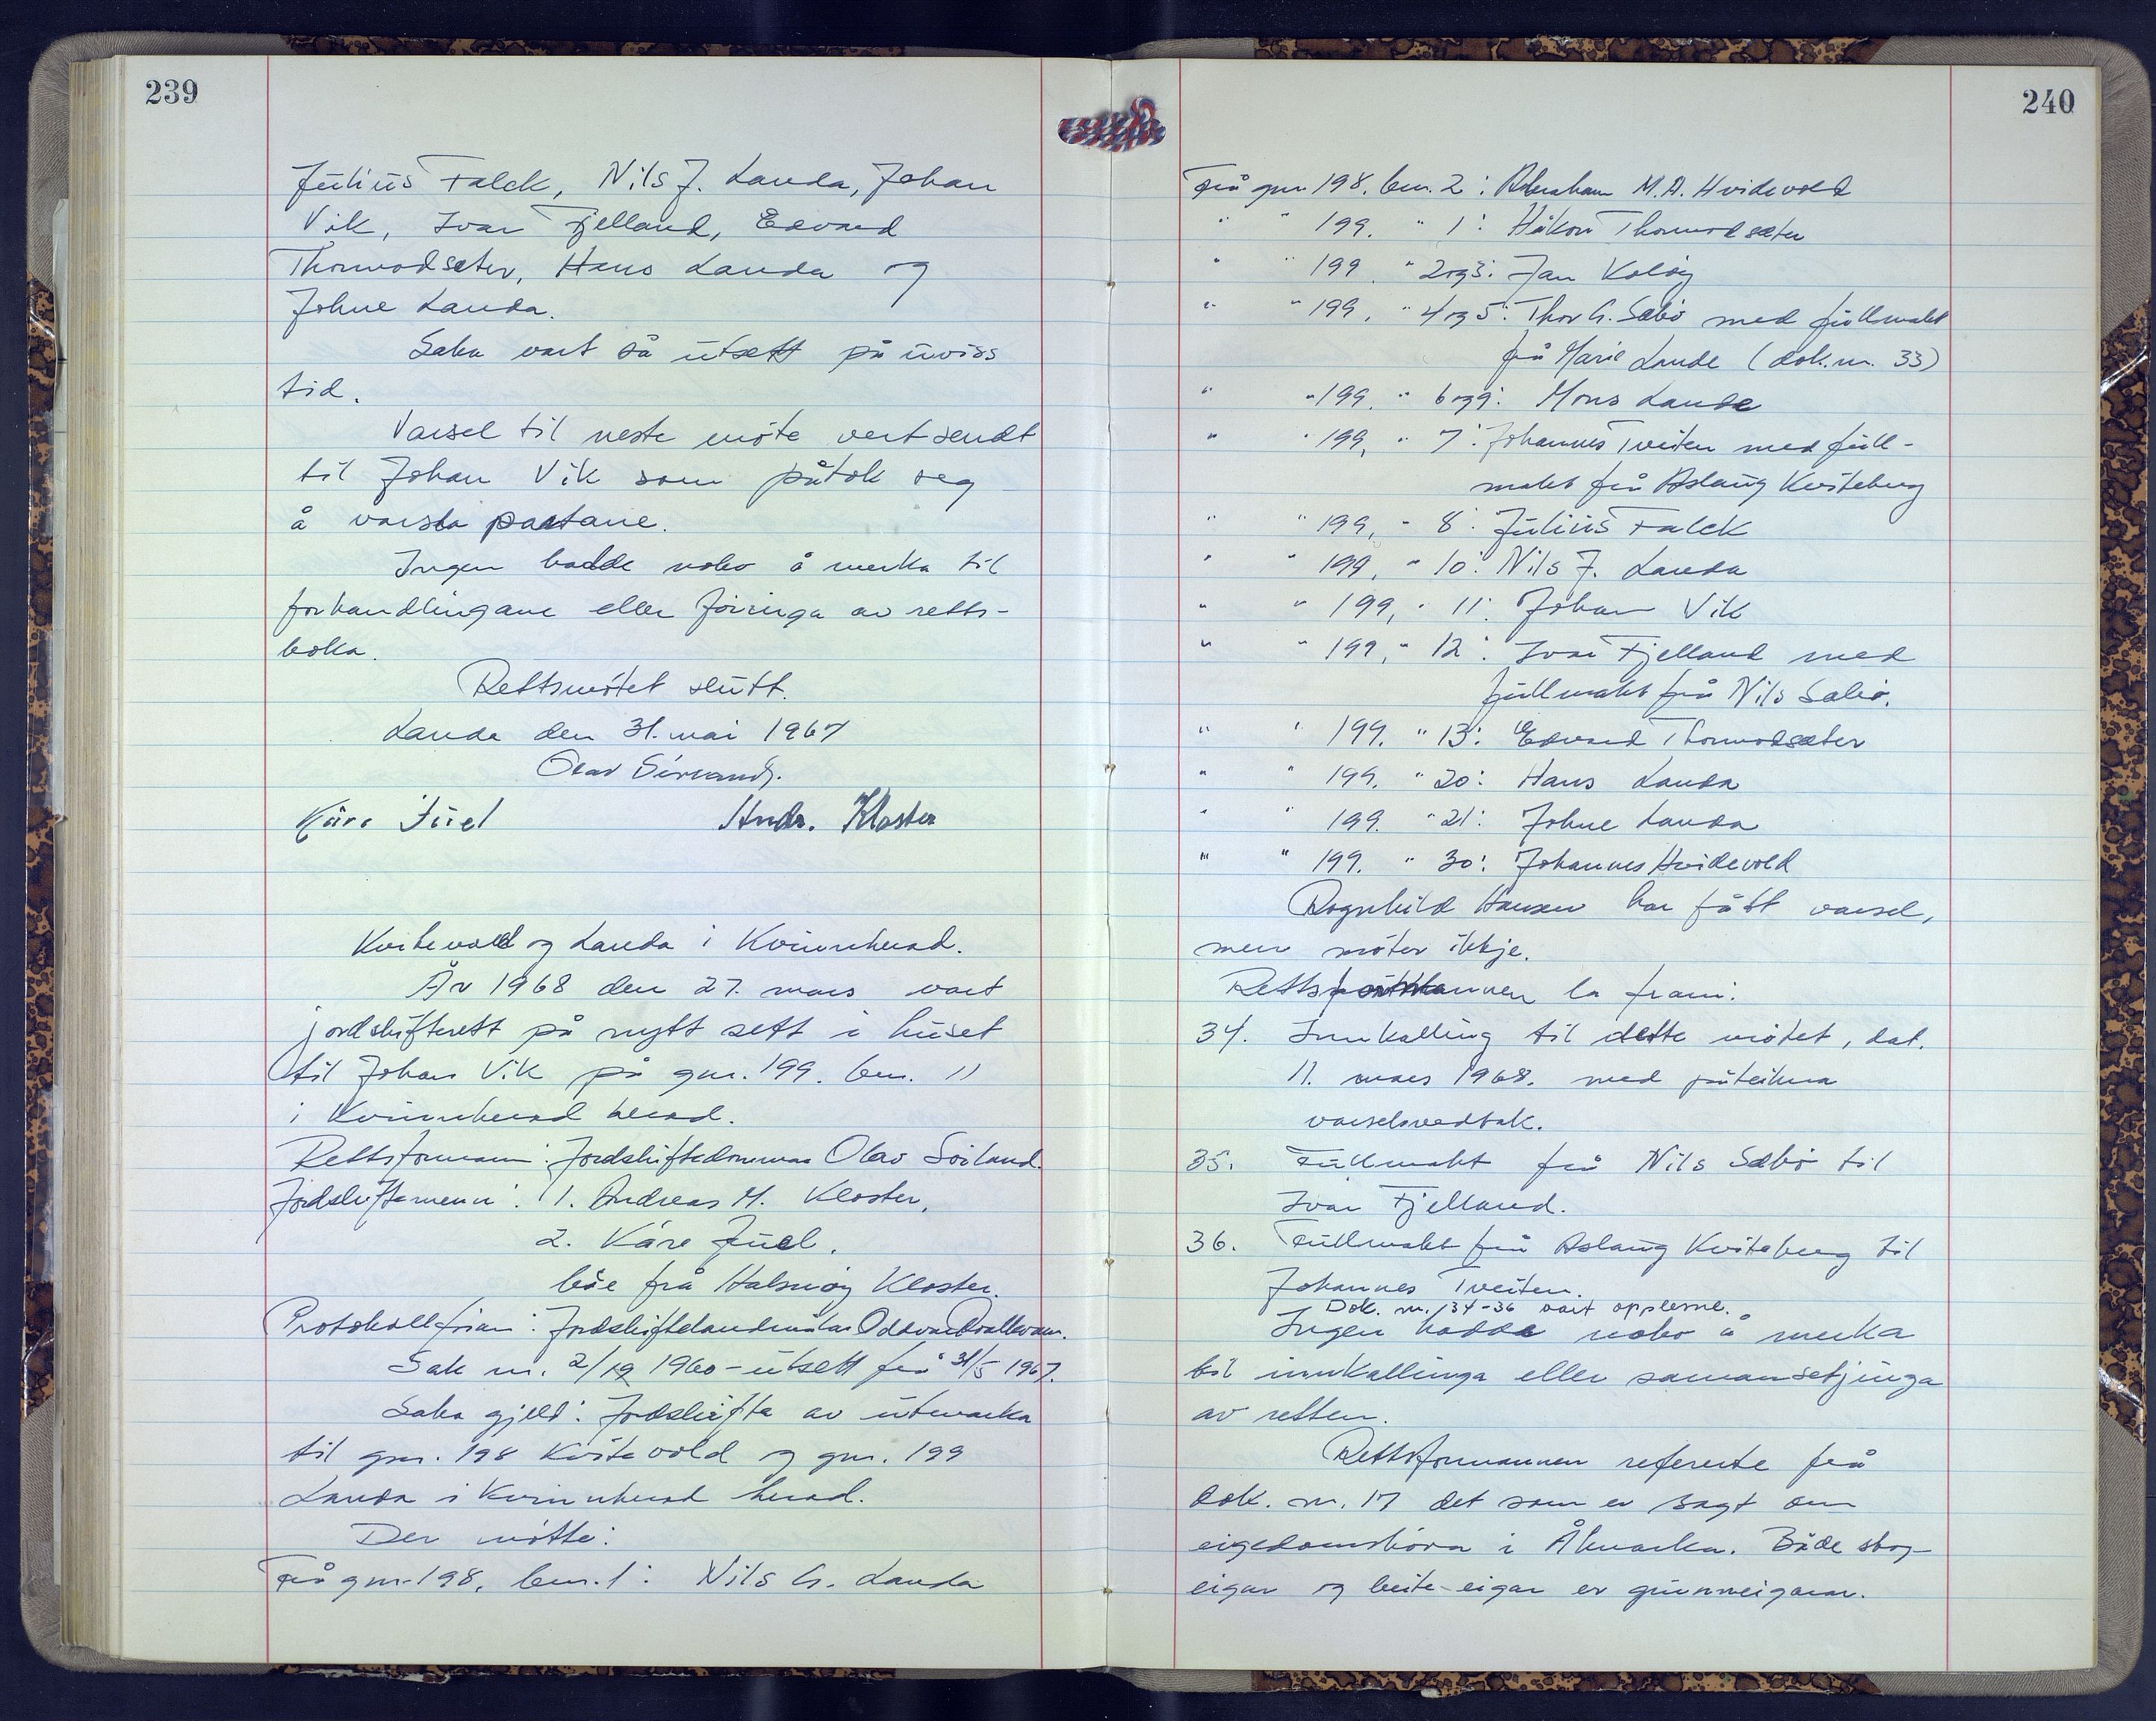 239
Julius Falck, Nils J. Landa, Johan
Vik, Ivar Fjelland, Edvard
Thormodsæter, Hans Landa og
Johne Landa.
Saka vart så utsett på uviss
tid.
Varsel til neste møte vert sendt
til Johan Vik som påtok seg
å varsla partane.
Ingen hadde noko å merka til
forhandlingane eller føringa av retts-
boka.
Rettsmøtet slutt.
Landa den 31. mai 1967
Olav Søiland
Kåre Juel Andr. Kloster
Kvitevold og Landa i Kvinnherad.
År 1968 den 27. mars vart
jordskifterett på nytt sett i huset
til Johan Vik på gnr. 199. bnr. 11
i Kvinnherad herad.
Rettsformann: Jordskiftedommar Olav Søiland.
Jordskiftemenn: 1. Andreas M. Kloster,
2. Kåre Juel,
båe frå Halsnøy Kloster.
Protokollførar: Jordskiftelandmålar Oddvar
Sak nr. 2/19 1960 - utsett frå 31/5 1967.
Saka gjeld: Jordskifte av utmarka
til gnr. 198 Kvitevold og gnr. 199
Landa i Kvinnherad herad.
Der møtte:
Frå gnr. 198, bnr. 1: Nils G. Landa
240
Frå gnr. 198. bnr. 2: Abraham M.A. Hvidevold
" " 199. " 1: Håkon Thormodsæter
" " 199. " 2 og 3: Jan Koløy
" " 199. " 4 og 5: Thor G. Sæbø med fullmakt
frå Marie Lande (dok. nr. 33)
" " 199. " 6 og 9: Mons Lande
" " 199, " 7: Johannes Tveiten med full-
makt frå Aslaug Kviteberg
" " 199, " 8: Julius Falck
" " 199, " 10: Nils J. Landa
" " 199, " 11: Johan Vik
" " 199, " 12: Ivar Fjelland med
fullmakt frå Nils Sæbø.
" " 199. " 13: Edvard Thormodsæter
" " 199. " 20: Hans Landa
" " 199. " 21: Johne Landa
" " 199. " 30: Johannes Hvidevold
Ragnhild Hansen har fått varsel,
men møter ikkje.
Rettsformannen la fram:
34. Innkalling til dette møtet, dat.
11. mars 1968. med påteikna
varselsvedtak.
35. Fullmakt frå Nils Sæbø til
Ivar Fjelland.
36. Fullmakt frå Aslaug Kviteberg til
Johannes Tveiten.
Dok. nr. 34-36 vart opplesne.
Ingen hadde noko å merka
til innkallinga eller samansetjinga
av retten.
Rettsformannen refererte frå
dok. nr. 17 det som er sagt om
eigedomshøva i Åkmarka. Både skog-
eigar og beite-eigar er grunneigarar.